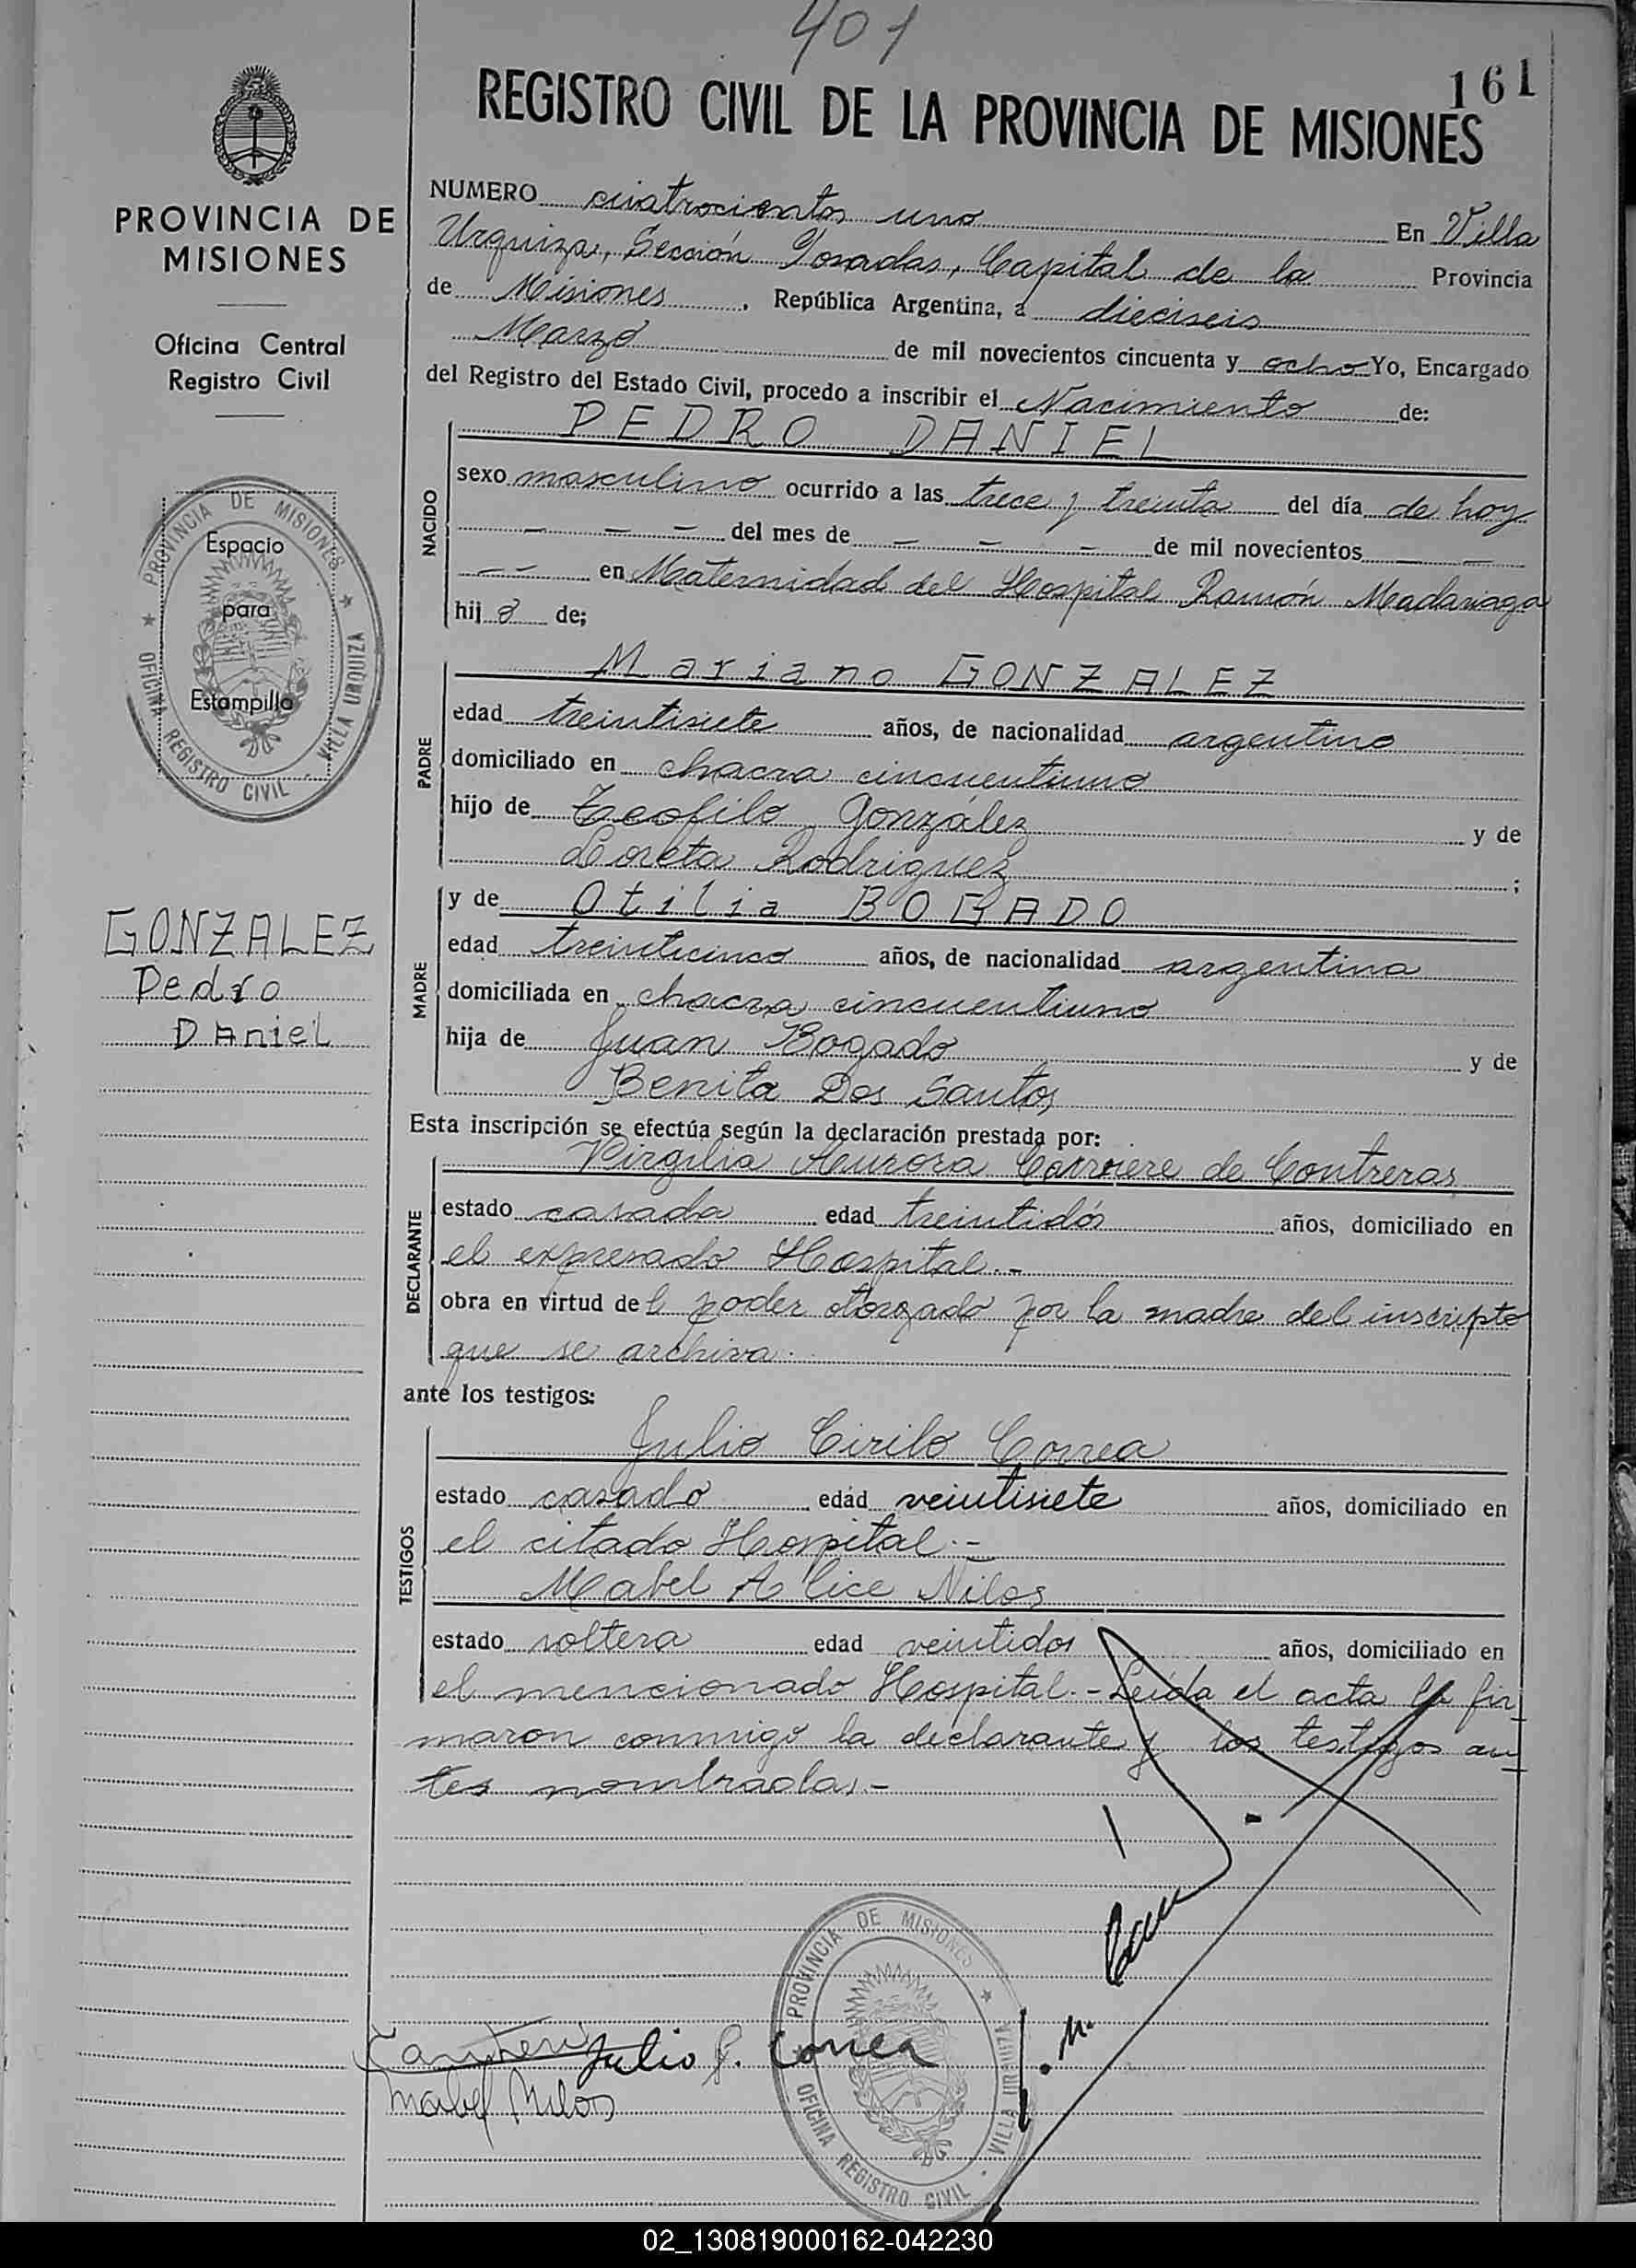 401
161
REGISTRO CIVIL DE LA PROVINCIA DE MISIONES
PROVINCIA DE
MISIONES
Oficina Central
Registro Civil
PROVINCIA DE MISIONES
OFICINA REGISTRO CIVIL - VILLA URQUIZA
Espacio
para
Estampilla
GONZALEZ
Pedro
DAniel
NUMERO cuatrocientos uno En Villa
Urquiza, Sección Posadas, Capital de la Provincia
de Misiones, República Argentina, a dieciseis
Marzo de mil novecientos cincuenta y ocho Yo, Encargado
del Registro del Estado Civil, procedo a inscribir el Nacimiento de:
PEDRO DANIEL
NACIDO
sexo masculino ocurrido a las trece y treinta del día de hoy
— — — del mes de — — — de mil novecientos — —
— — en Maternidad del Hospital Ramón Madariaga
hijo de;
Mariano GONZALEZ
PADRE
edad treintisiete años, de nacionalidad argentino
domiciliado en chacra cincuentiuno
hijo de Teofilo González y de
Loreta Rodriguez ;
y de Otilia BOGADO
MADRE
edad treinticinco años, de nacionalidad argentina
domiciliada en chacra cincuentiuno
hija de Juan Bogado y de
Benita Dos Santos
Esta inscripción se efectúa según la declaración prestada por:
Virgilia Aurora de Contreras
DECLARANTE
estado casada edad treintidós años, domiciliado en
el expresado Hospital.-
obra en virtud del poder otorgado por la madre del inscripto
que se archiva.
ante los testigos:
Julio Cirilo Correa
TESTIGOS
estado casado edad veintisiete años, domiciliado en
el citado Hospital.-
Mabel Alice Nilos
estado soltera edad veintidos años, domiciliado en
el mencionado Hospital.- Leída el acta la fir
maron conmigo la declarante y los testigos an
tes nombrados.-
Julio C. Correa
Mabel Nilos
PROVINCIA DE MISIONES
OFICINA REGISTRO CIVIL - VILLA URQUIZA
02_130819000162-042230